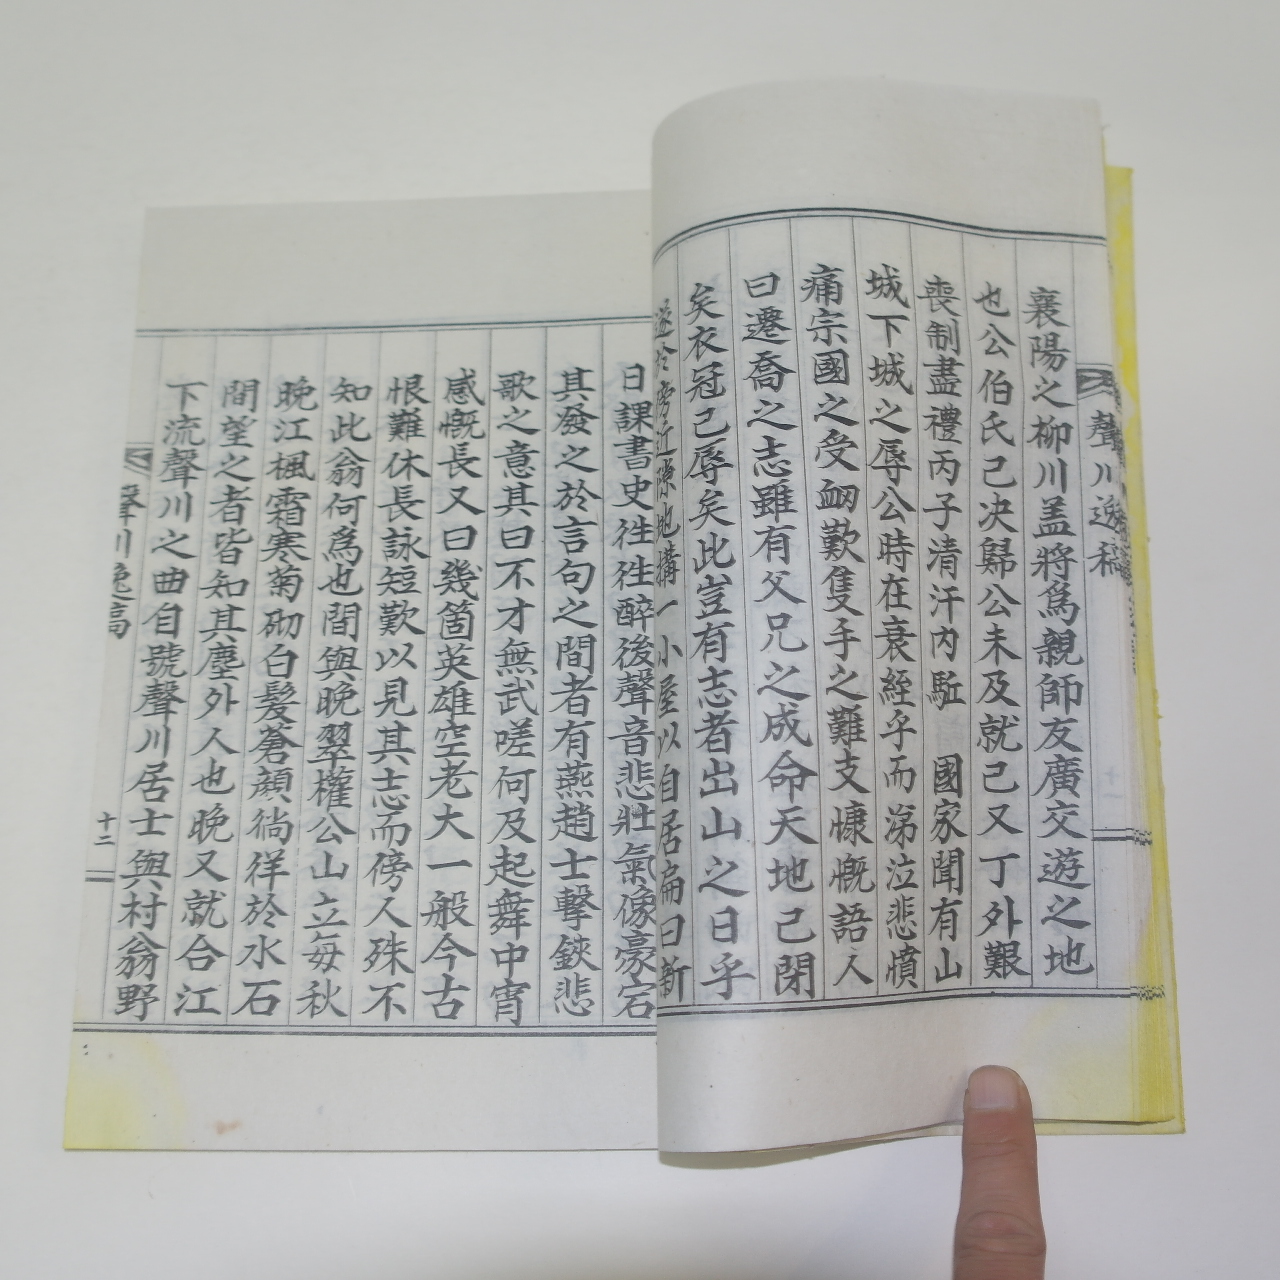 聲川逸稿
襄陽之柳川盖將爲親師友廣交遊之地
也公伯氏已决歸公未及就已又丁外艱
喪制盡禮丙子清汗內駈 國家聞有山
城下城之辱公時在衰絰乎而涕泣悲憤
痛宗國之受衂歎隻手之難支慷慨語人
曰遷喬之志雖有父兄之成命天地已閉
矣衣冠已辱矣此豈有志者出山之日乎
遂於旁近隙地搆一小屋以自居扁曰新
日課書史徃徃醉後聲音悲壯氣像豪宕
其發之於言句之間者有燕趙士擊鋏悲
歌之意其曰不才無武嗟何及起舞中宵
感慨長又曰幾箇英雄空老大一般今古
恨難休長詠短歎以見其志而傍人殊不
知此翁何爲也間與晩翠權公山立每秋
晩江楓霜寒菊砌白髮蒼顔徜徉於水石
間望之者皆知其塵外人也晩又就合江
下流聲川之曲自號聲川居士與村翁野
聲川逸稿
十二